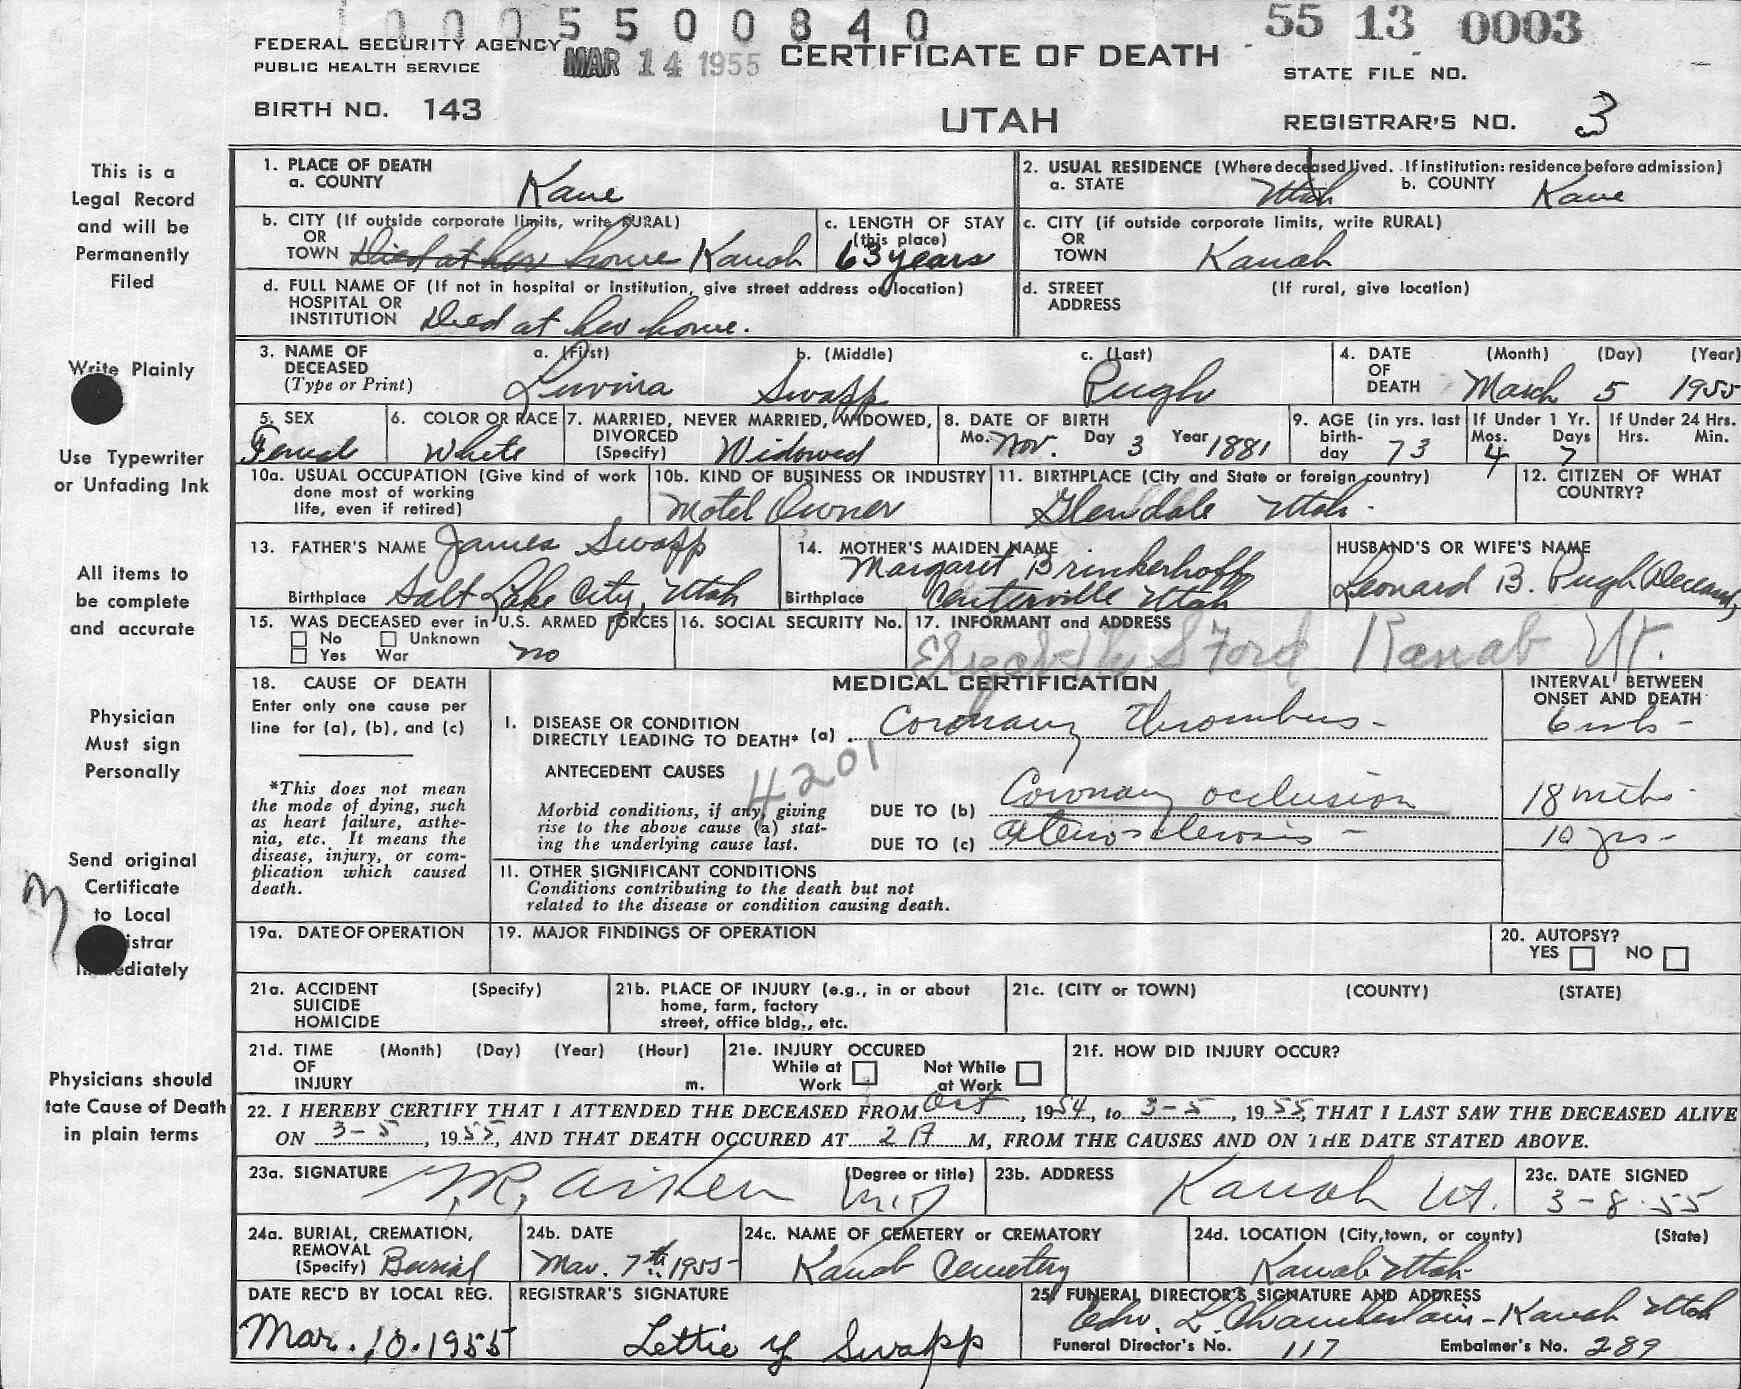 0005500840
55 13 0003
FEDERAL SECURITY AGENCY
PUBLIC HEALTH SERVICE
MAR 14 1955
CERTIFICATE OF DEATH
STATE FILE NO.
BIRTH NO. 143
UTAH
REGISTRAR'S NO. 3
This is a
Legal Record
and will be
Permanently
Filed
Write Plainly
Use Typewriter
or Unfading Ink
All items to
be complete
and accurate
Physician
Must sign
Personally
Send original
Certificate
to Local
istrar
ediately
3
Physicians should
tate Cause of Death
in plain terms
1. PLACE OF DEATH
a. COUNTY Kane
2. USUAL RESIDENCE (Where deceased lived. If institution: residence before admission)
a. STATE Utah b. COUNTY Kane
b. CITY (If outside corporate limits, write RURAL)
OR
TOWN Died at her home Kanab
c. LENGTH OF STAY
(this place)
63 years
c. CITY (if outside corporate limits, write RURAL)
OR
TOWN Kanab
d. FULL NAME OF (If not in hospital or institution, give street address or location)
HOSPITAL OR
INSTITUTION Died at her home.
d. STREET (If rural, give location)
ADDRESS
3. NAME OF DECEASED
(Type or Print)
a. (First) b. (Middle) c. (Last)
Luvina Swapp Pugh
4. DATE OF DEATH (Month) (Day) (Year)
March 5 1955
5. SEX
Female
6. COLOR OR RACE
White
7. MARRIED, NEVER MARRIED, WIDOWED,
DIVORCED
(Specify) Widowed
8. DATE OF BIRTH
Mo. Nov. Day 3 Year 1881
9. AGE (in yrs. last
birth-
day 73
If Under 1 Yr.
Mos. Days
4 7
If Under 24 Hrs.
Hrs. Min.
10a. USUAL OCCUPATION (Give kind of work
done most of working
life, even if retired)
10b. KIND OF BUSINESS OR INDUSTRY
Motel Owner
11. BIRTHPLACE (City and State or foreign country)
Glendale Utah.
12. CITIZEN OF WHAT
COUNTRY?
13. FATHER'S NAME James Swapp
Birthplace Salt Lake City, Utah
14. MOTHER'S MAIDEN NAME
Margaret Brinkerhoff
Birthplace Centerville Utah
HUSBAND'S OR WIFE'S NAME
Leonard B. Pugh
15. WAS DECEASED ever in U.S. ARMED FORCES
No Unknown
Yes War no
16. SOCIAL SECURITY No.
17. INFORMANT and ADDRESS
Elizabeth S Ford Kanab Ut.
18. CAUSE OF DEATH
Enter only one cause per
line for (a), (b), and (c)
*This does not mean
the mode of dying, such
as heart failure, asthe-
nia, etc. It means the
disease, injury, or com-
plication which caused
death.
MEDICAL CERTIFICATION
INTERVAL BETWEEN
ONSET AND DEATH
I. DISEASE OR CONDITION
DIRECTLY LEADING TO DEATH* (a) Coronary Thrombus -
4201
ANTECEDENT CAUSES
Morbid conditions, if any, giving
rise to the above cause (a) stat-
ing the underlying cause last.
DUE TO (b) Coronary occlusion 18 mths.
DUE TO (c) arteriosclerosis - 10 yrs -
11. OTHER SIGNIFICANT CONDITIONS
Conditions contributing to the death but not
related to the disease or condition causing death.
19a. DATE OF OPERATION
19. MAJOR FINDINGS OF OPERATION
20. AUTOPSY?
YES NO
21a. ACCIDENT (Specify)
SUICIDE
HOMICIDE
21b. PLACE OF INJURY (e.g., in or about
home, farm, factory
street, office bldg., etc.
21c. (CITY or TOWN) (COUNTY) (STATE)
21d. TIME (Month) (Day) (Year) (Hour)
OF
INJURY m.
21e. INJURY OCCURED
While at Work
Not While at Work
21f. HOW DID INJURY OCCUR?
22. I HEREBY CERTIFY THAT I ATTENDED THE DECEASED FROM Oct, 1954, to 3-5, 1955, THAT I LAST SAW THE DECEASED ALIVE
ON 3-5, 1955, AND THAT DEATH OCCURED AT 2 A M, FROM THE CAUSES AND ON THE DATE STATED ABOVE.
23a. SIGNATURE (Degree or title)
Aiken M.D
23b. ADDRESS
Kanab Ut.
23c. DATE SIGNED
3-8-55
24a. BURIAL, CREMATION,
REMOVAL
(Specify) Burial
24b. DATE
Mar. 7th 1955
24c. NAME OF CEMETERY or CREMATORY
Kanab Cemetery
24d. LOCATION (City, town, or county) (State)
Kanab Utah
DATE REC'D BY LOCAL REG.
Mar. 10. 1955
REGISTRAR'S SIGNATURE
Lettie Y Swapp
25. FUNERAL DIRECTOR'S SIGNATURE AND ADDRESS
Edw. L. Chamberlain - Kanab Utah
Funeral Director's No. 117 Embalmer's No. 289